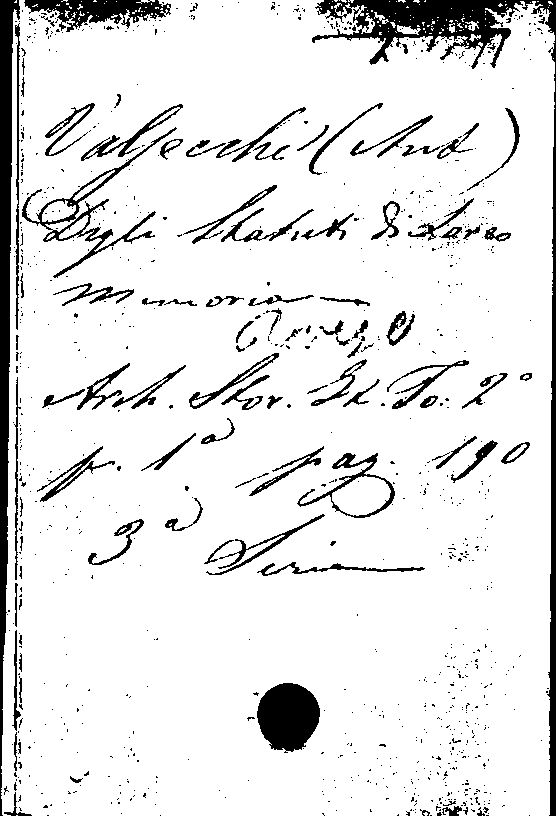 Valsecchi (Ant)
Degli Statuti di Loreo
Memoria
Arch. Stor. It. To. 2°
p. 1ª pag. 190
3ª Serie